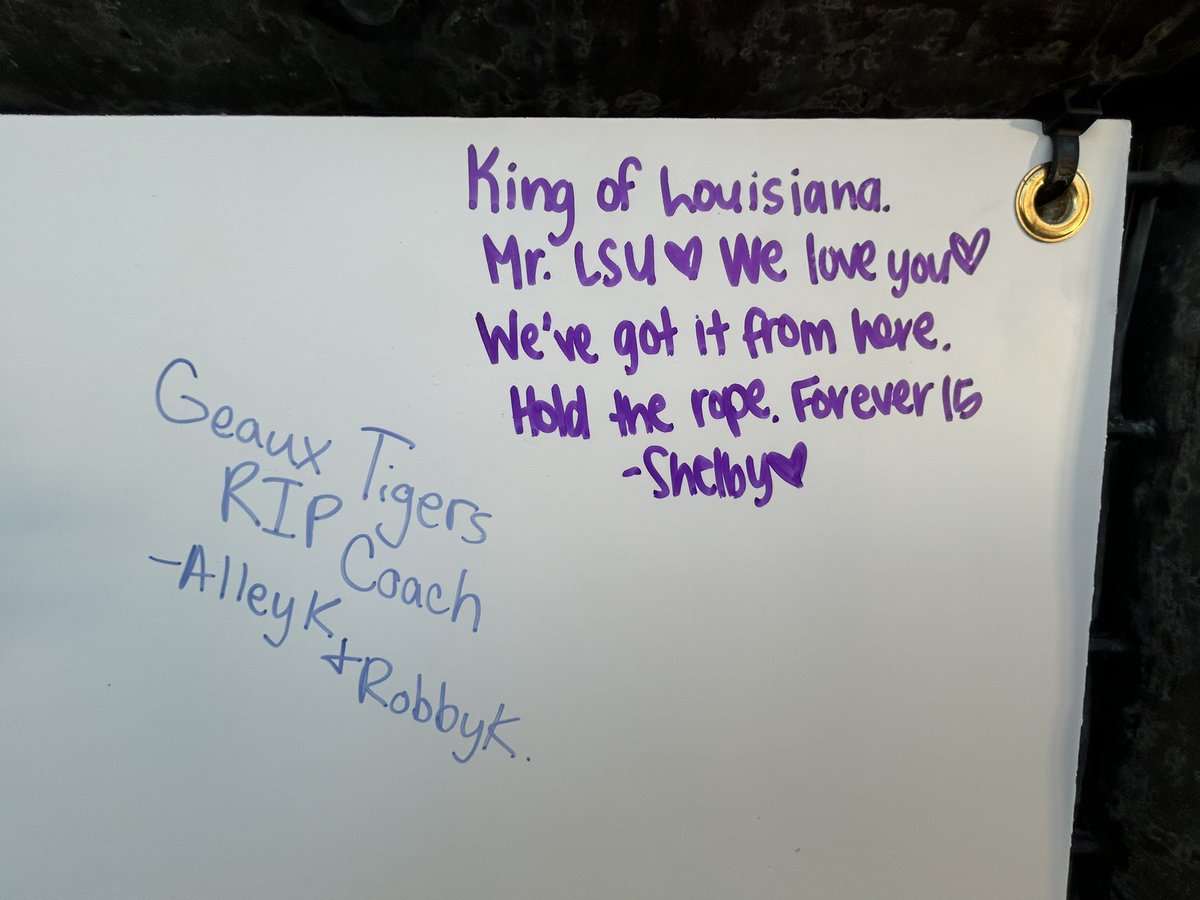 King of Louisiana.
Mr. LSU♥ We love you♥
We've got it from here.
Hold the rope. Forever 15
-Shelby♥
Geaux Tigers
RIP Coach
-Alley K
+ Robby K.